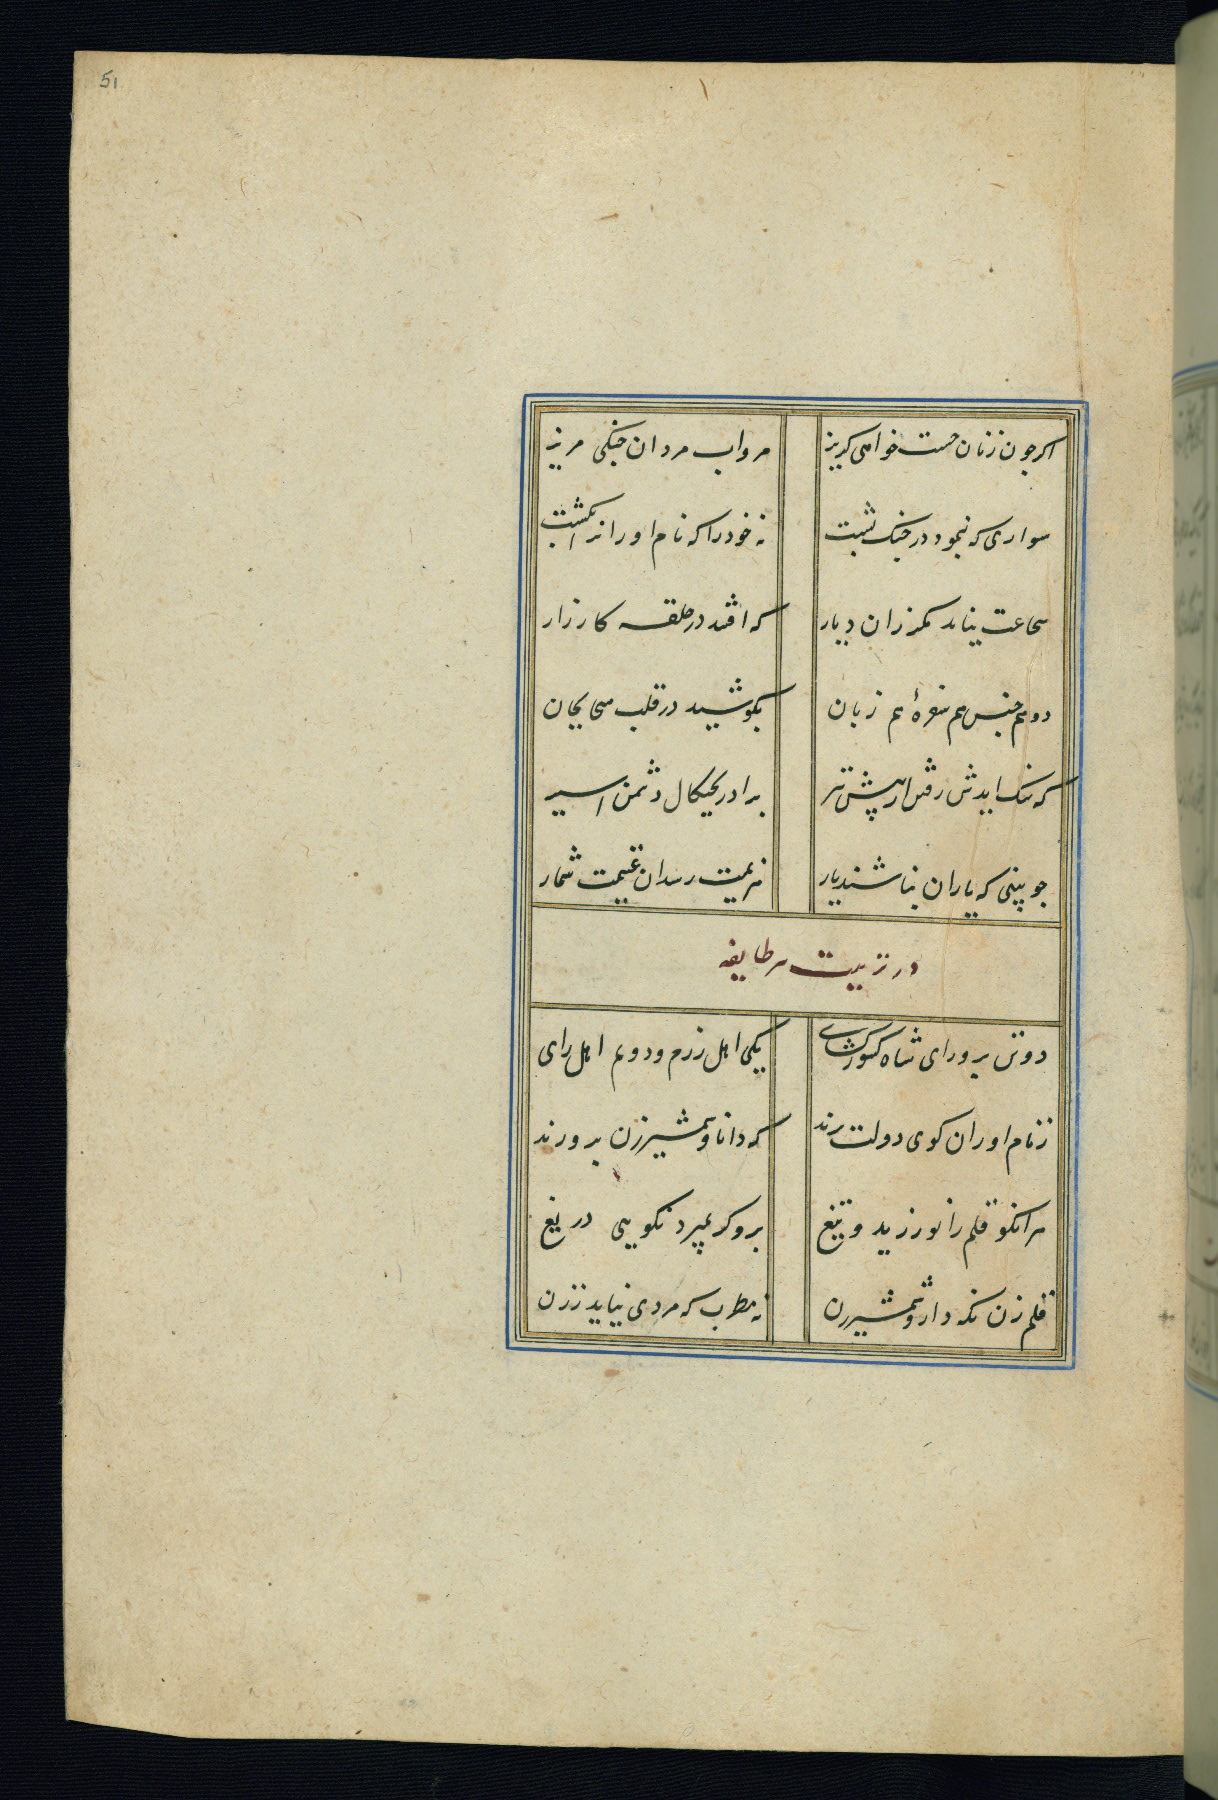 51
اکر جون زنان جست خواهی کریز مرو اب مردان جنکی مریز
سواری که بنمود در جنک پشت نه خود را که نام اوران را بکشت
شجاعت نیاید مکر زان دو یار که افتند در حلقه کارزار
دو هم جنس هم سفرهٔ هم زبان بکوشند در قلب هیجا بجان
که ننک ایدش رفتن از پیش تیر برادر بچنکال دشمن اسیر
جو بینی که یاران نباشند یار هزیمت ز میدان غنیمت شمار
در تربیت هر طایفه
دو تن پرور ای شاه کشور کشای یکی اهل رزم و دوم اهل رای
ز نام اوران کوی دولت برند که دانا و شمشیرزن پرورند
هر انکو قلم را نورزید و تیغ برو کر بمیرد نکویی دریغ
قلم زن نکه دار و شمشیرزن نه مطرب که مردی نیاید ز زن